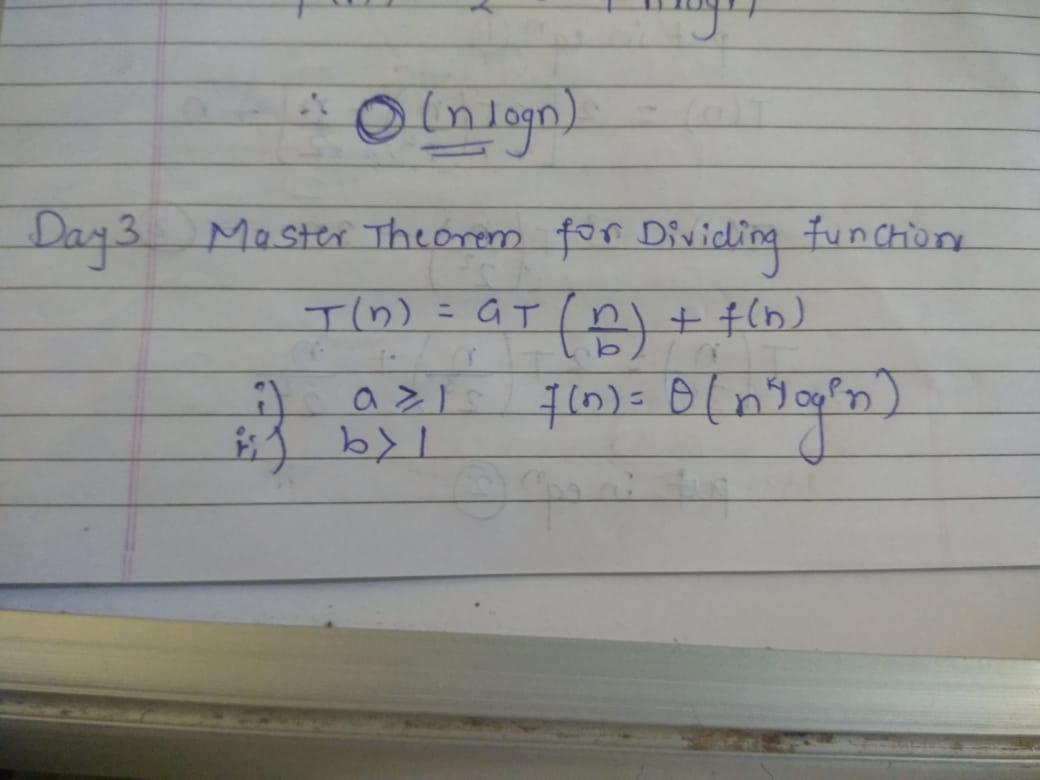 ∴ O (n logn)
Day 3 Master Theorem for Dividing function
T(n) = aT(n/b) + f(n)
i) a ≥ 1 f(n) = θ(n^k log^p n)
ii) b > 1